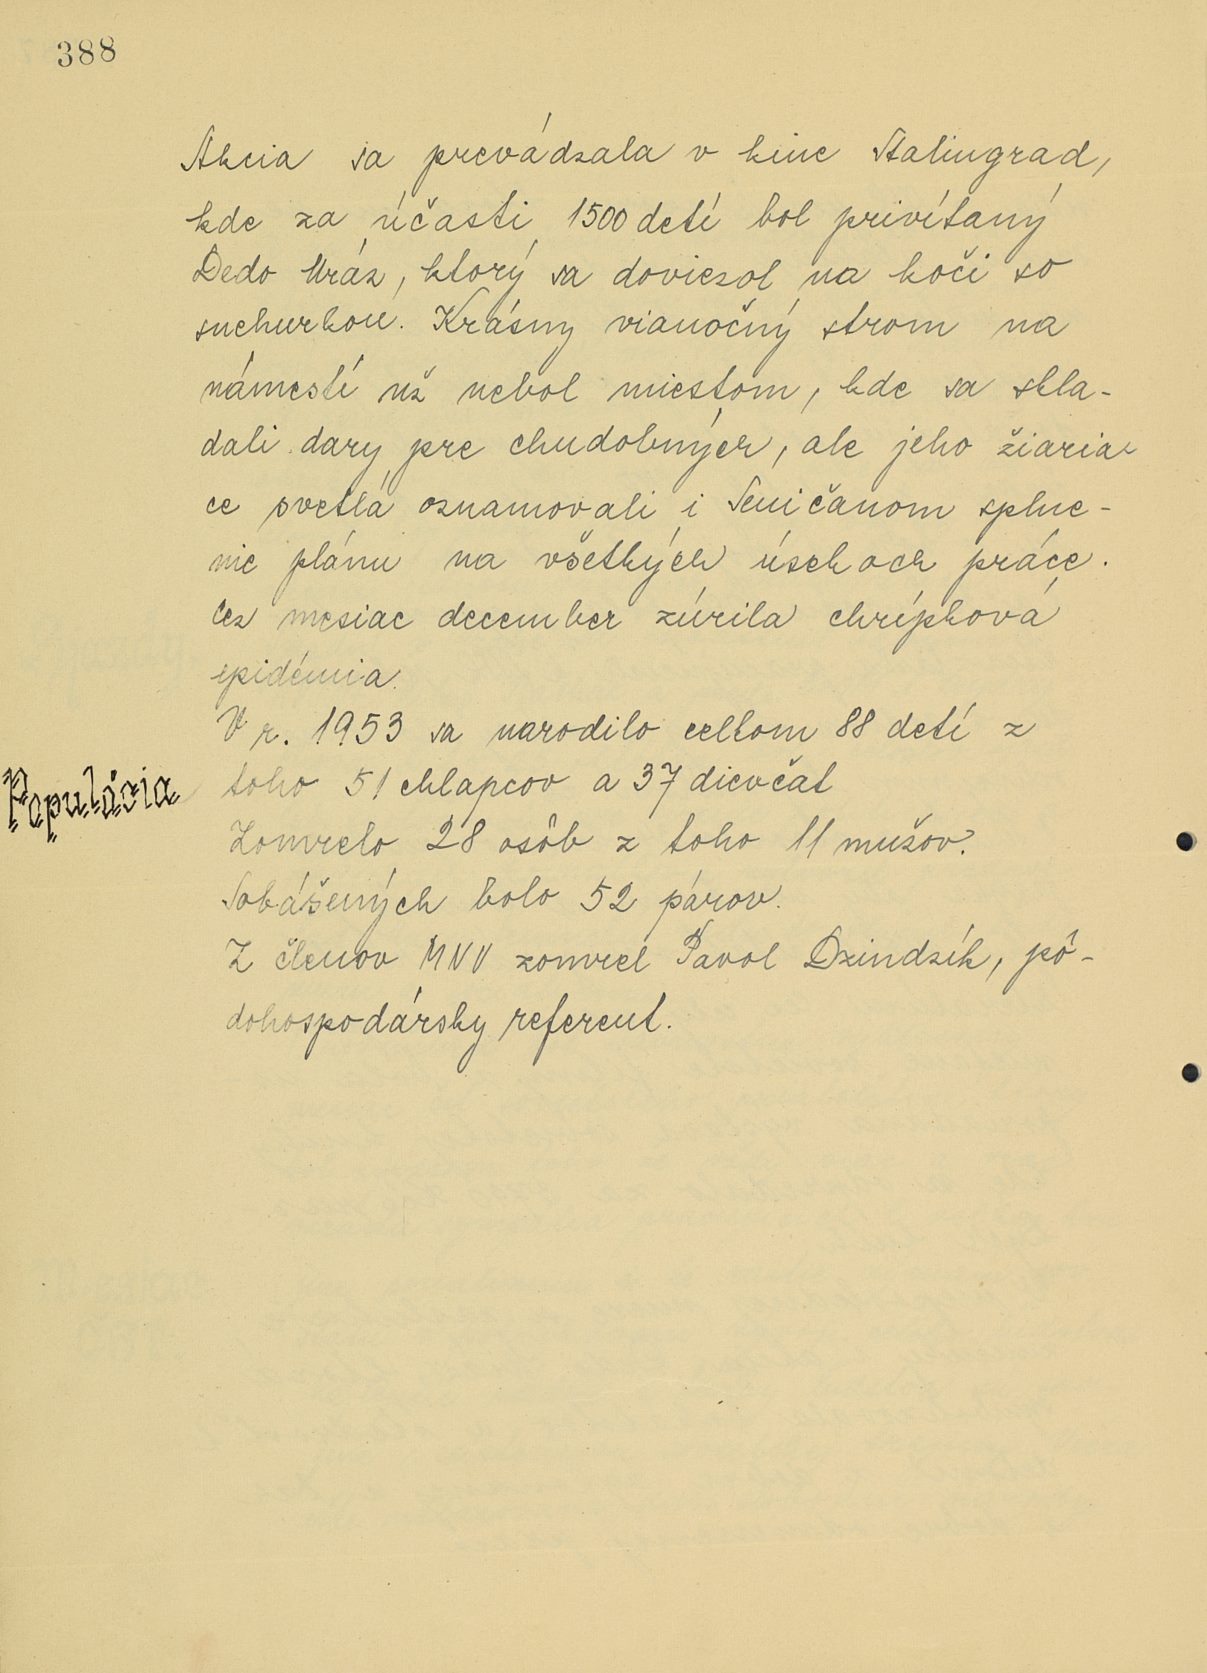 388
Akcia sa prevádzala v kine Stalingrad,
kde za účasti 1500 detí bol privítaný
Dedo Mráz, ktorý sa doviezol na koči so
snehurkou. Krásny vianočný strom na
námestí už nebol miestom, kde sa skla-
dali dary pre chudobných, ale jeho žiaria-
ce svetlá oznamovali i Seničanom splne-
nie plánu na všetkých úsekoch práce.
Cez mesiac december zúrila chrípková
epidémia.
V r. 1953 sa narodilo celkom 88 detí z
Populácia
toho 51 chlapcov a 37 dievčat
Zomrelo 28 osôb z toho 11 mužov.
Sobášených bolo 52 párov.
Z členov MNV zomrel Pavol Dzindzík, pô-
dohospodársky referent.